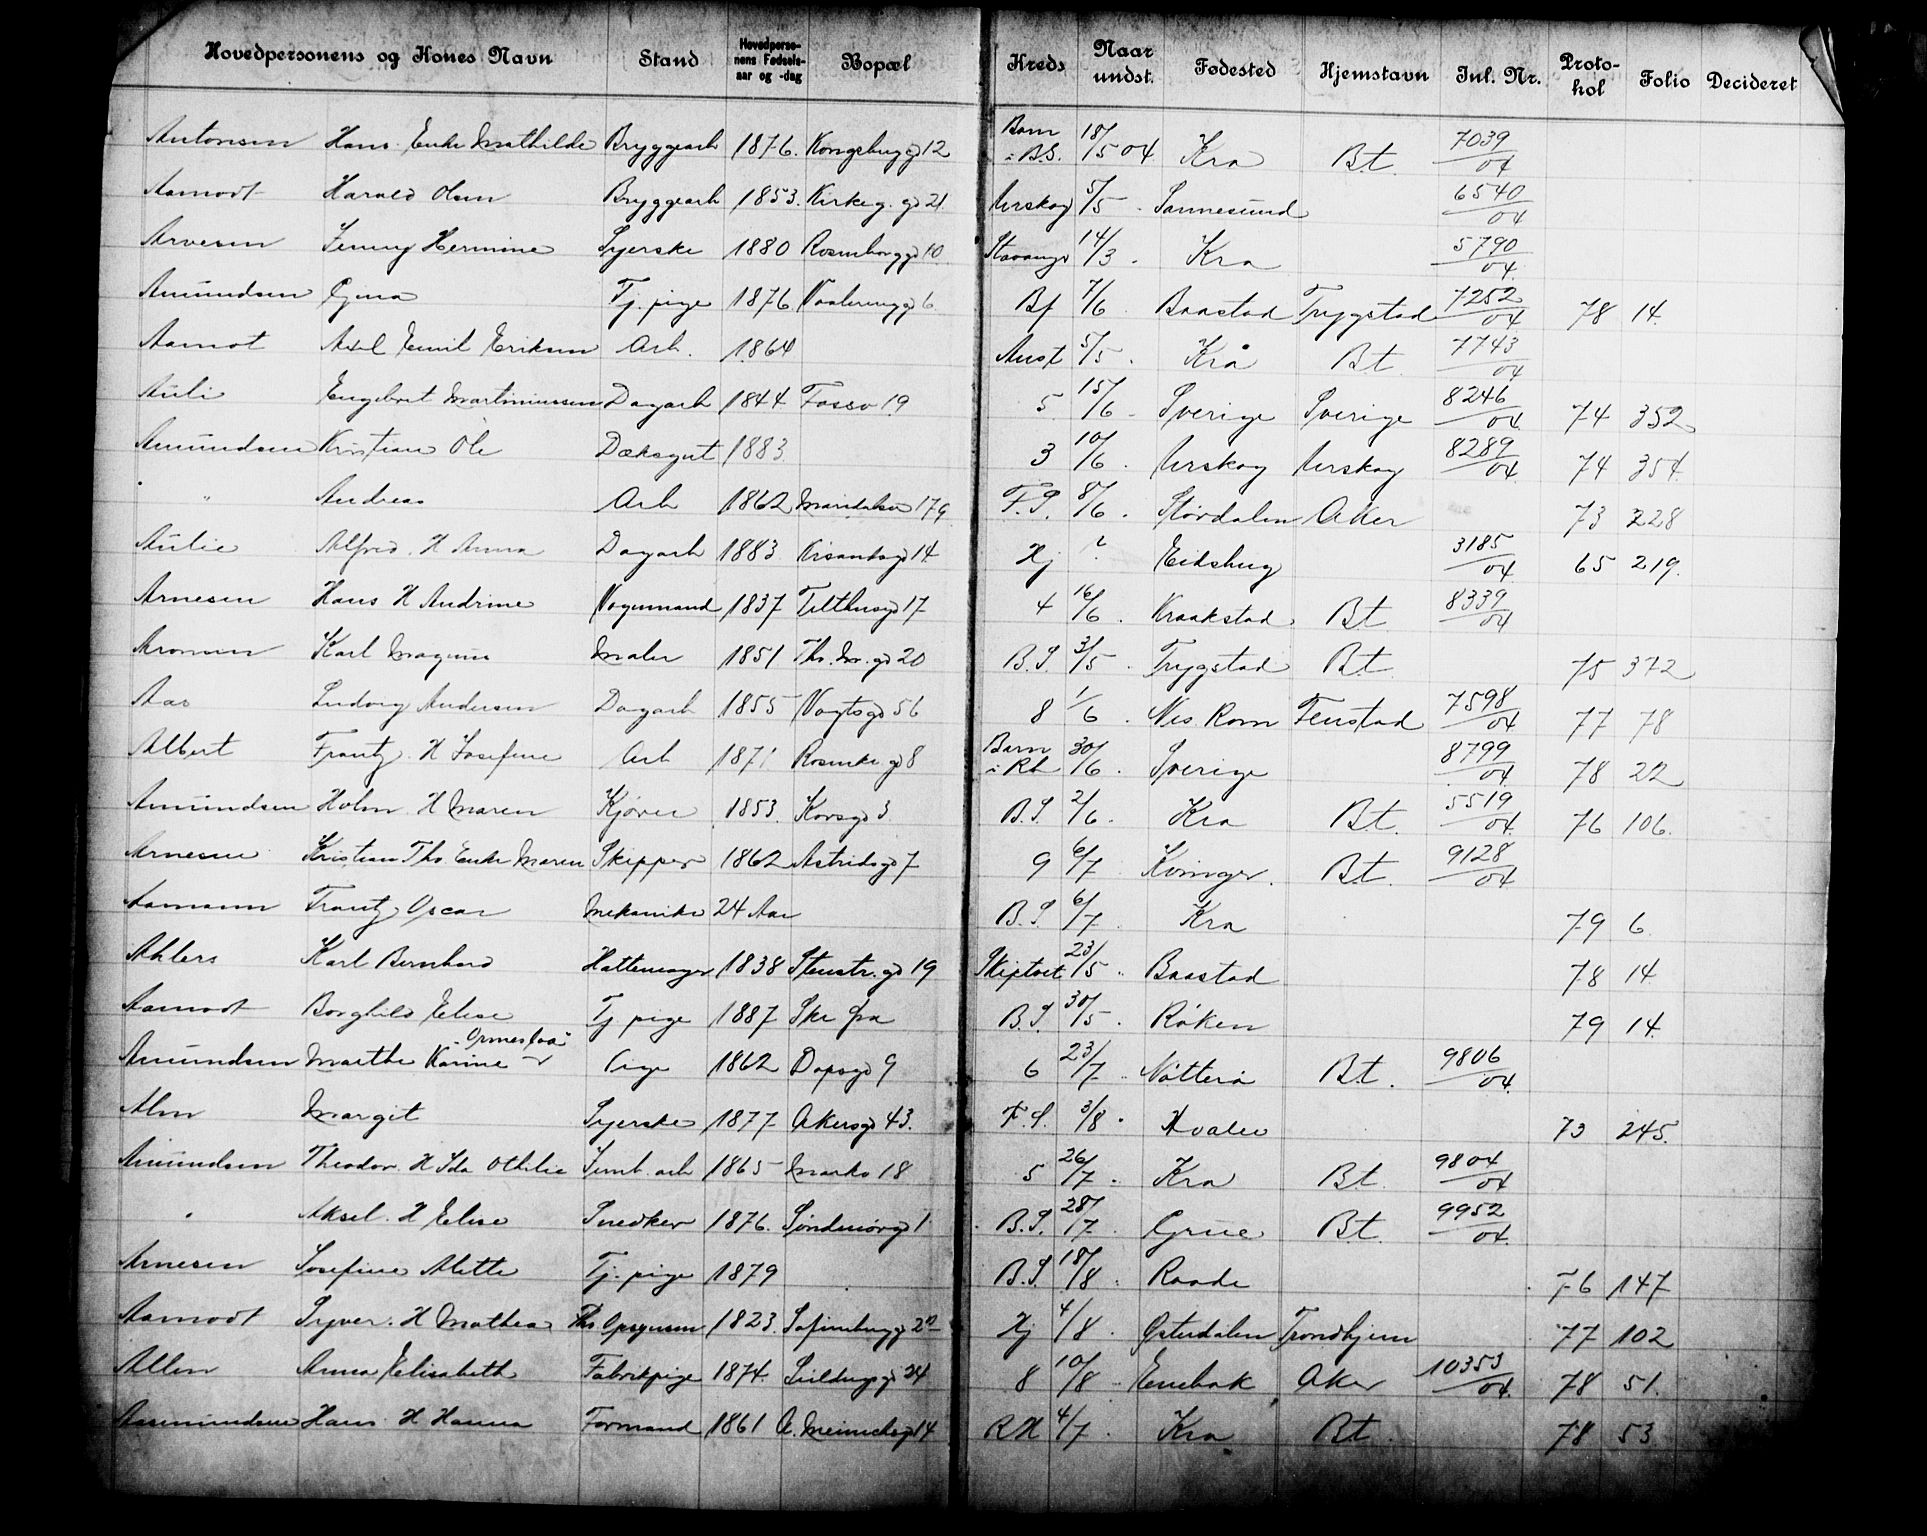 Hovedpersonens og Kones Navn Stand Hovedpersonens Fødselsaar og -dag Bopæl Kreds Naar undst. Fødested Hjemstavn Inl. Nr. Protokol Folio Decideret
Antonsen Hans. Enke Mathilde Bryggearb 1876. Kongsbugg 12 Barn i B.S. 18/5 04 Kra Bt. 7039/04
Aamodt Harald Olsen Bryggearb 1853. Kirkeg. gd 21. Urskog 5/5 Sannesund 6540/04
Arvesen Jenny Hermine Syerske 1880 Rosenborggd 10 Stavanger 14/3 Kra 5790/04
Amundsen Gina Tj. pige 1876 Vaaleringgd 6 Bf 7/6 Baastad Trygstad 7252/04 78 14.
Aamot Axel Emil Eriksen Arb. 1864 Aust 5/5 Kra Bt. 7743/04
Auli Engebret Martiniussen Dagarb 1844 Fossv 19 5 15/6 Sverige Sverige 8246/04 74 352
Amundsen Kristian Ole Dæksgut 1883 3 10/6 Urskog Urskog 8289/04 74 354
" " Andreas Arb 1862 Maridalsv 179 F.S. 8/6 Størdalen Aker 73 228
Aulie Alfred. H Anna Dagarb 1883 Krisandsgd 14 Hj ? Eidsberg 3185/04 65 219.
Arnesen Hans H Andrine Vognmand 1837 Tilthusgd 17 4 16/6 Kraakstad Bt. 8339/04
Aronsen Karl Magnus Maler 1851 Th. M. gd 20 B.S. 3/5 Trygstad Bt. 75 372
Aas Ludvig Andersen Dagarb 1855 Vogtsgd 56 8 1/6 Nes Rom Fenstad 7598/04 77 78
Albert Frantz. H Josefine Arb 1871 Rosenkr gd 8 Barn i Rh 30/6 Sverige 8799/04 78 22
Amundsen Holm. H Maren Kjører 1853. Korsgd 3 B.S. 2/6 Kra Bt. 5519/04 76 106.
Arnesen Kristian Ths Enke Maren Skipper 1862 Astridsgd 7 9 6/7 Kvinger. Bt. 9128/04
Aamann Frantz Oscar Mekaniker 24 Aar B.S. 6/7 Kra 79 6
Ahlers Karl Bernhard Hattemager 1838 Stenstr. gd 19 Skiptvet 23/5 Baastad 78 14
Aamodt Borghild Elise Tj. pige 1887 Ske fra B.S. 30/5 Røken 79 14.
Amundsen Marthe Karine Ormestad Pige 1862 Dopsgd 9 6 23/7 Nøtterø Bt. 9806/04
Alm Margit Syerske 1877 Akersgd 43. F.S. 3/8 Hvaler 73 245.
Amundsen Theodor. H Ida Othilie Jernb. arb 1865 Markv 18 5 26/7 Kra Bt. 9804/04
" Aksel. H Elise Snedker 1876. Søndmørgd 1 B.S. 28/7 Grue Bt. 9952/04
Arnesen Josefine Alette Tj. pige 1879 B.S. 18/8 Raade 76 147
Aamodt Syver. H Mathea Ths Opsynsm 1823. Sofienbergg 2 Hj 4/8 Østerdalen Trondhjem 77 102
Allen Anna Elisabeth Fabrikpige 1874. Seildugsgd 24 8 10/8 Enebak Aker 10353/04 78 51.
Aasmundsen Hans. H Hanna Formand 1861 A. Meinichsgd 14 RH 4/7 Kra Bt. 78 53